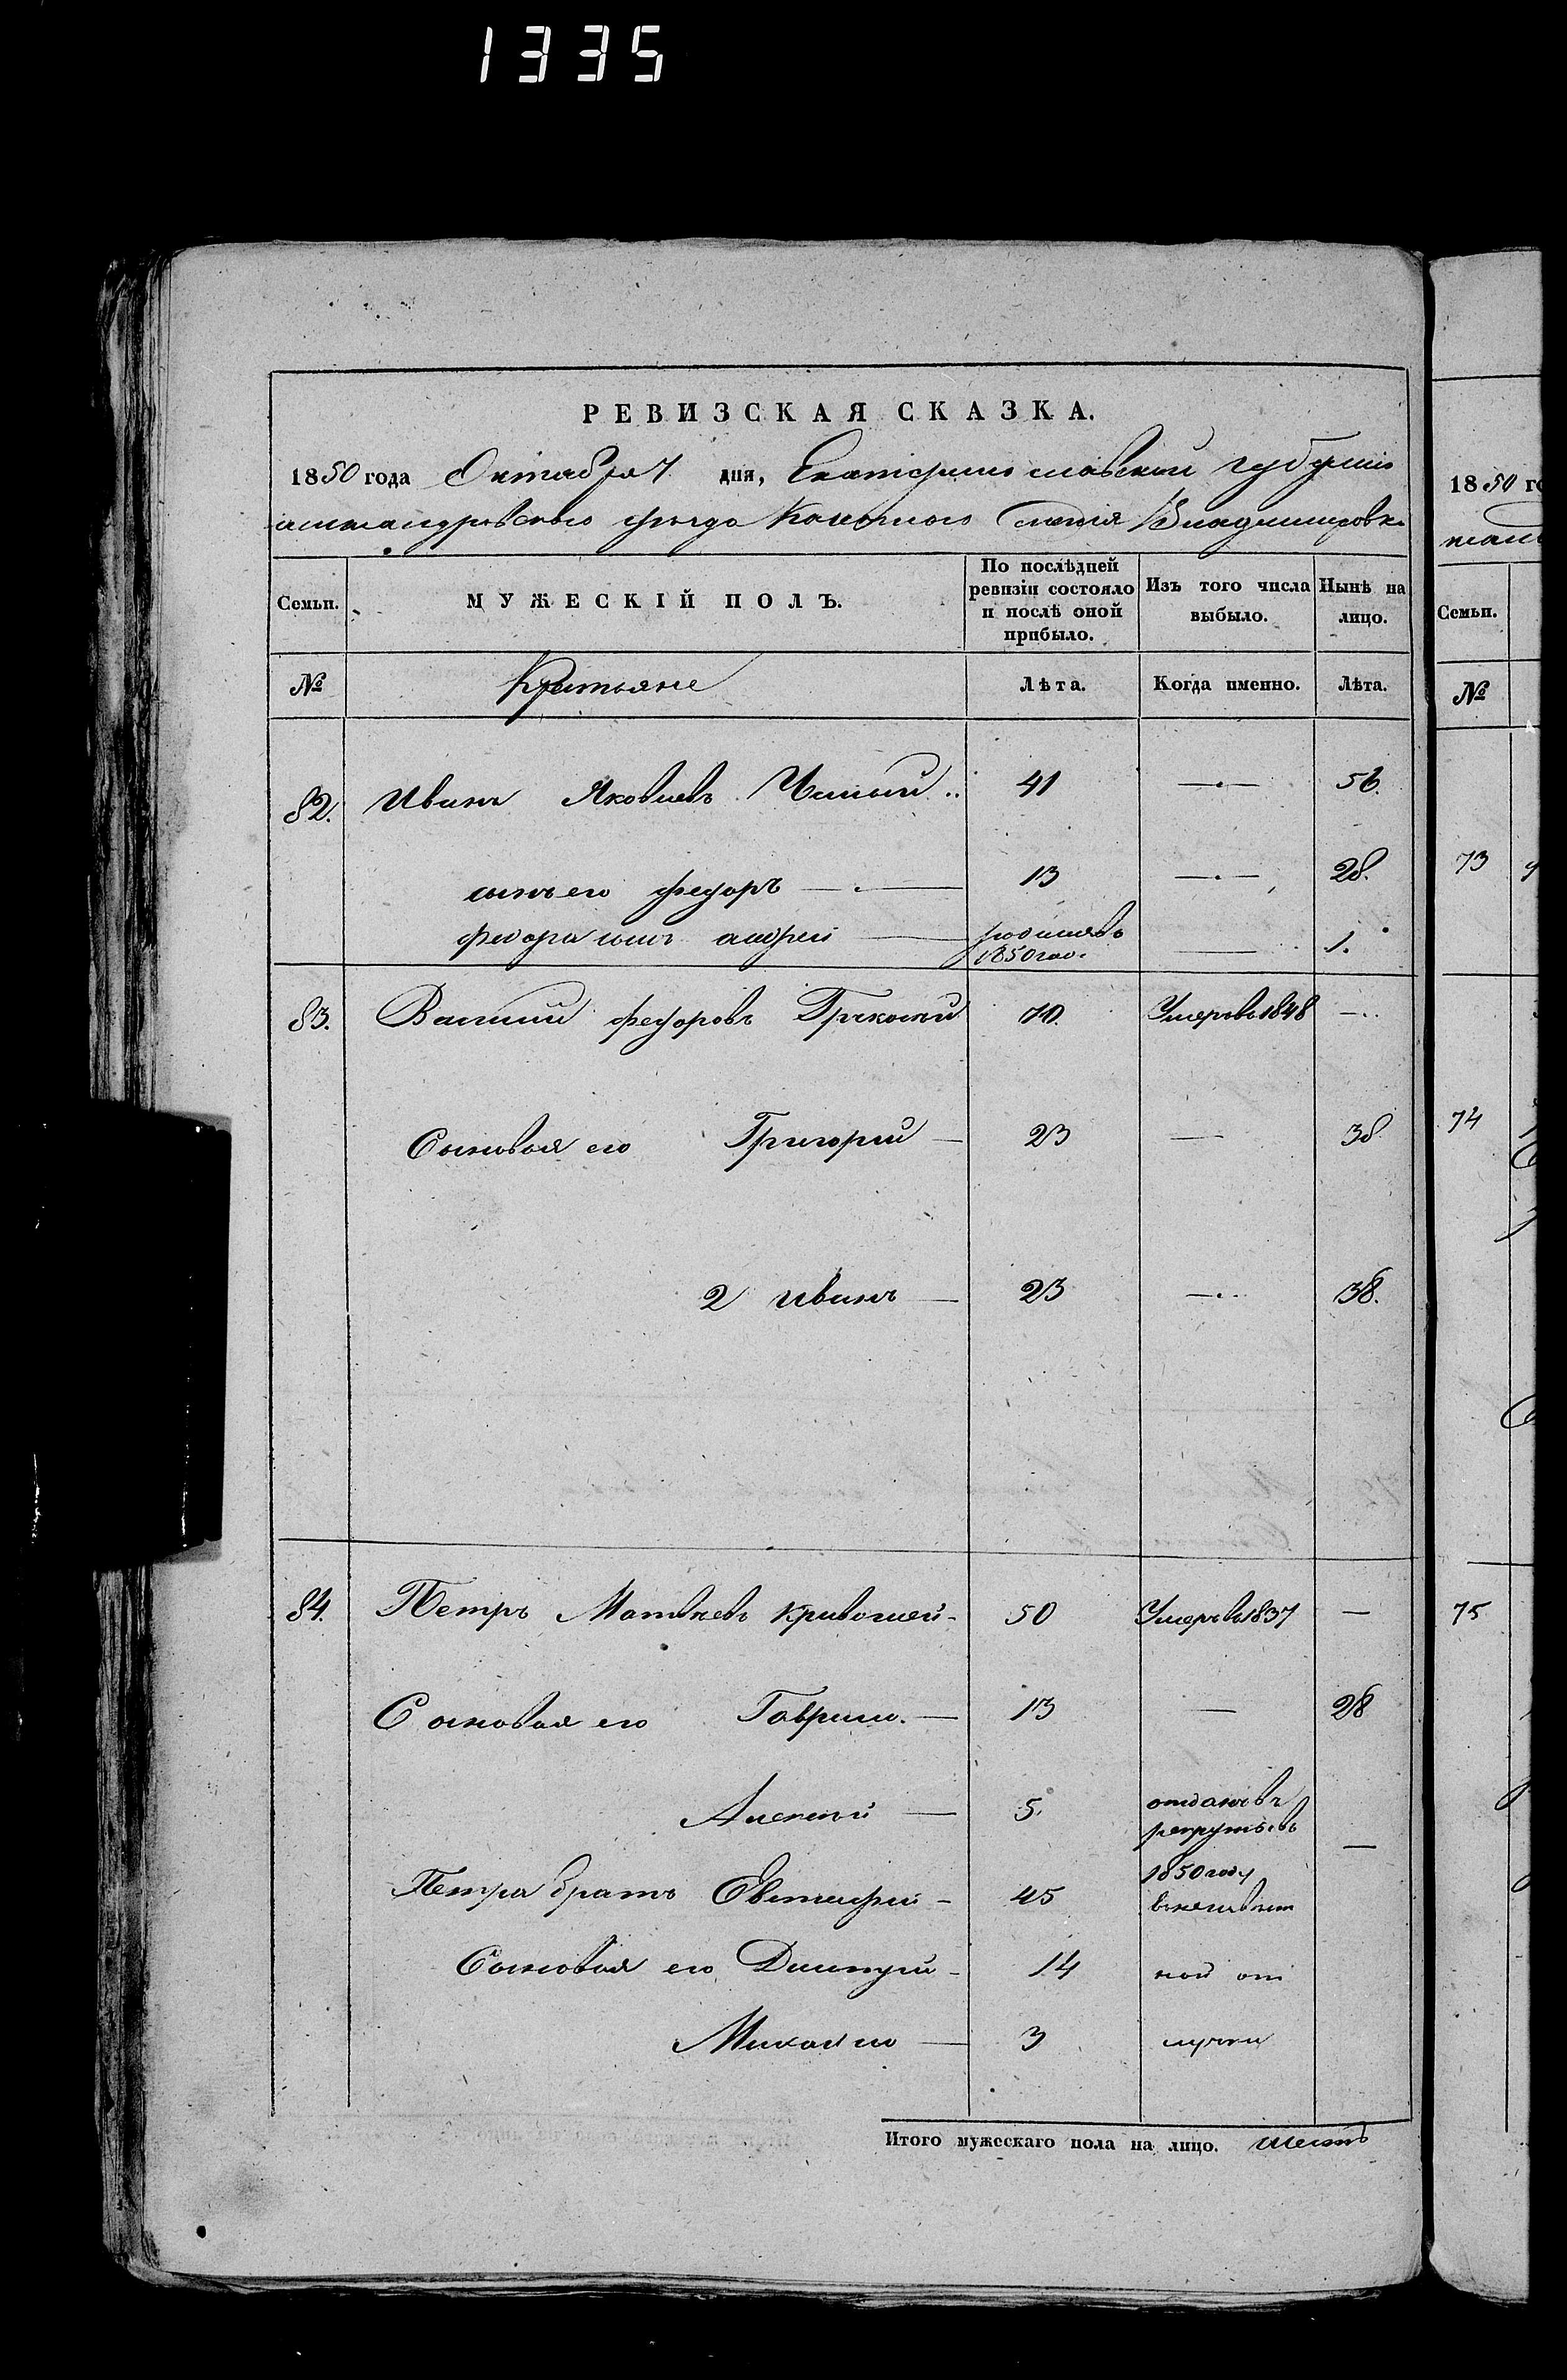 1335
РЕВИЗСКАЯ СКАЗКА.
1850 года Октября 7 дня, Екатеринославской губернiи
Александровского уѣзда Казенного Селенiя Владимировки
Семьи. МУЖЕСКІЙ ПОЛЪ. По послѣдней ревизіи состояло и послѣ оной прибыло. Изъ того числа выбыло. Нынѣ на лицо.
№ Крестьяне Лѣта. Когда именно. Лѣта.
82. Иванъ Яковлевъ 41 — 56.
сынъ его Федоръ — 13 — 28.
Федора сынъ Андрей — родился въ 1850 год. — 1.
83. Василий Федоровъ 70. Умеръ въ 1848 —
Сыновья его Григорий — 23 — 38
2 Иванъ — 23 — 38.
84. Петръ Матвѣевъ Кривошей - 50 Умеръ въ 1837 —
Сыновья его Гаврило. — 13 — 28
Алексей — 5. отданъ въ рекруты въ 1850 году —
Петра братъ - 45 в неизвѣст
Сыновья его Дмитрий - 14 ной от
Михайло — 3 лучки
Итого мужескаго пола на лицо. шесть
1850 го
Семьи.
№
73
74
75